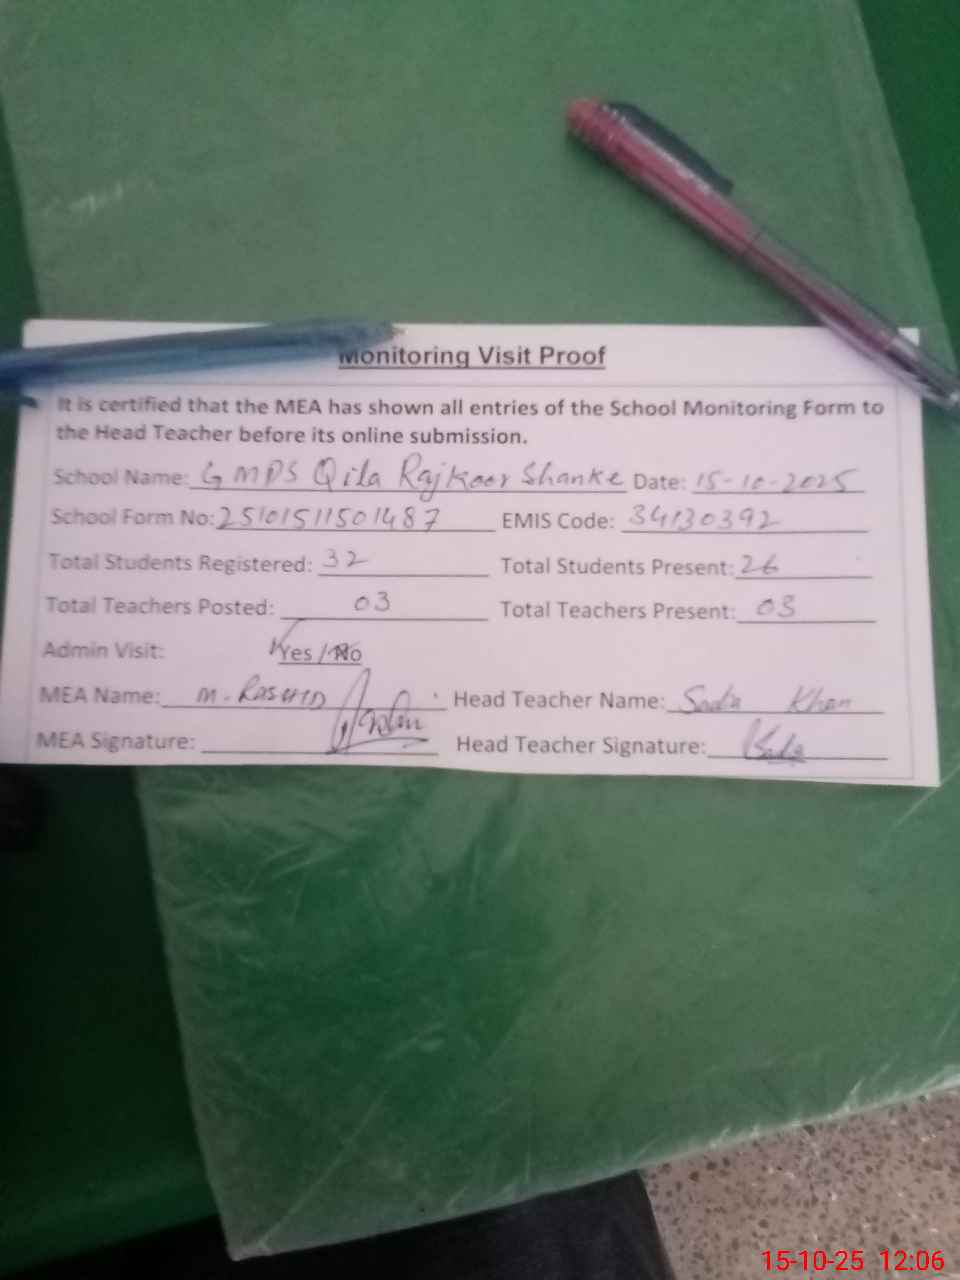 Monitoring Visit Proof
It is certified that the MEA has shown all entries of the School Monitoring Form to
the Head Teacher before its online submission.
School Name: GMPS Qila Rajkoor Shanke Date: 15-10-2025
School Form No: 25101511501487 EMIS Code: 34130392
Total Students Registered: 32 Total Students Present: 26
Total Teachers Posted: 03 Total Teachers Present: 03
Admin Visit: Yes / No
MEA Name: M. Rashid Head Teacher Name: Khan
MEA Signature: Head Teacher Signature:
15-10-25 12:06